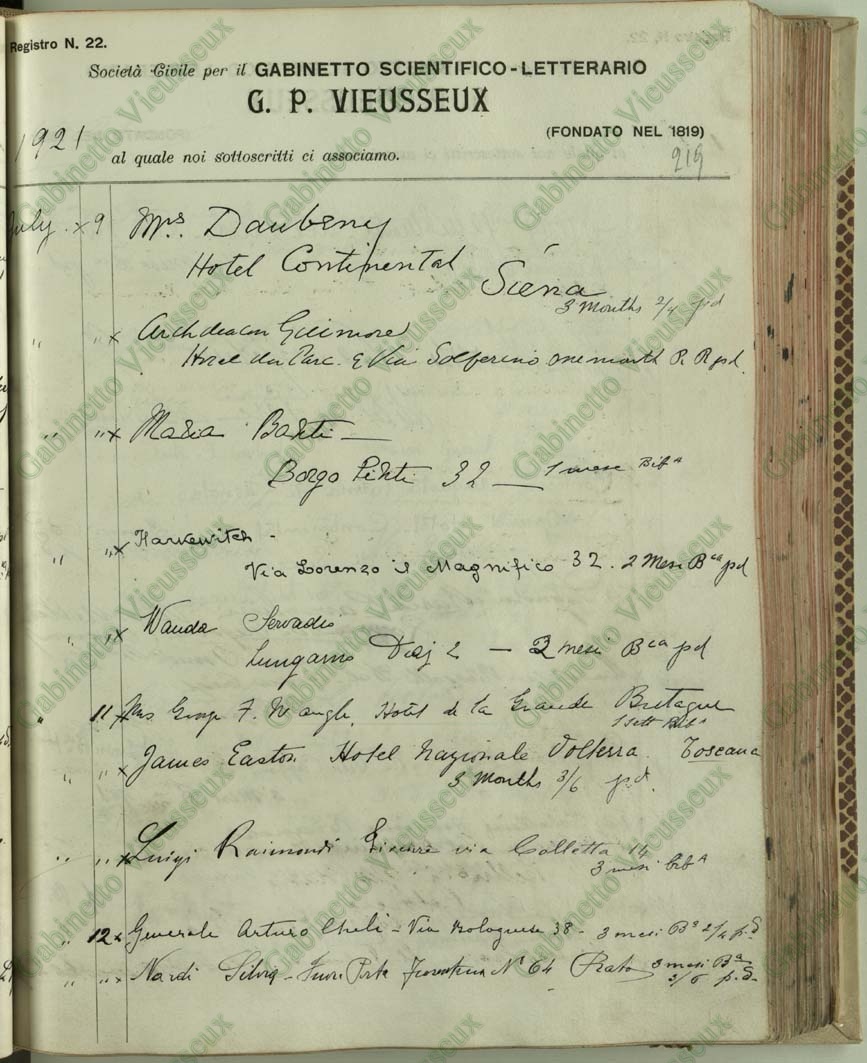 Registro N. 22.
Società Civile per il GABINETTO SCIENTIFICO-LETTERARIO
G. P. VIEUSSEUX
(FONDATO NEL 1819)
1921
al quale noi sottoscritti ci associamo.
219
July x 9 Mrs. Daubeny
Hotel Continental Siena
3 Months 2/4 pd
" " x Archdeacon
Hotel du Parc. & Via Solferino one month P. R pd.
" " x Maria
Borgo Pinti 32 — 1 mese Bibª
" " x Harkevitch -
Via Lorenzo il Magnifico 32. 2 Mesi Bca pd
" " x Wanda Servadio
Lungarno 2 — 2 mesi Bca pd
" 11 Mrs F. Hotel de la Grande Bretagne
1 Sett Bibª
" " x James Easton Hotel Nazionale Volterra. Toscana
3 Months 3/6 pd.
" " x Luigi Raimondi via Colletta 14
3 mesi bibª
" 12 x Generale Arturo Cheli - Via Bolognese 38 - 3 mesi Bª 2/4 p.d
" " x Nardi Silvia - Fuori Porta Fiorentina Nº 64 Prato 3 mesi Bª
3/6 p.d.
Gabinetto Vieusseux